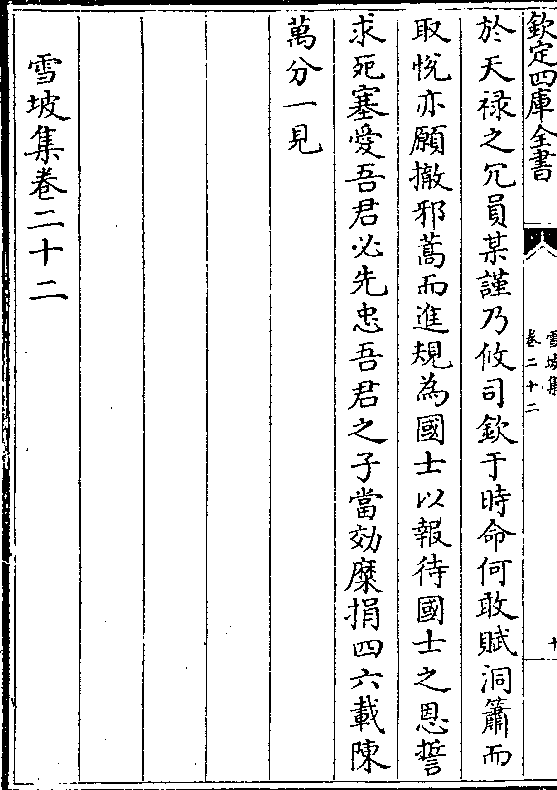 欽定四庫全書
雪坡集
卷二十二
十
於天禄之冗員某謹乃攸司欽于時命何敢賦洞簫而
取悅亦願撤邪蒿而進規為國士以報待國士之恩誓
求死塞愛吾君必先忠吾君之子當効糜捐四六載陳
萬分一見
雪坡集卷二十二